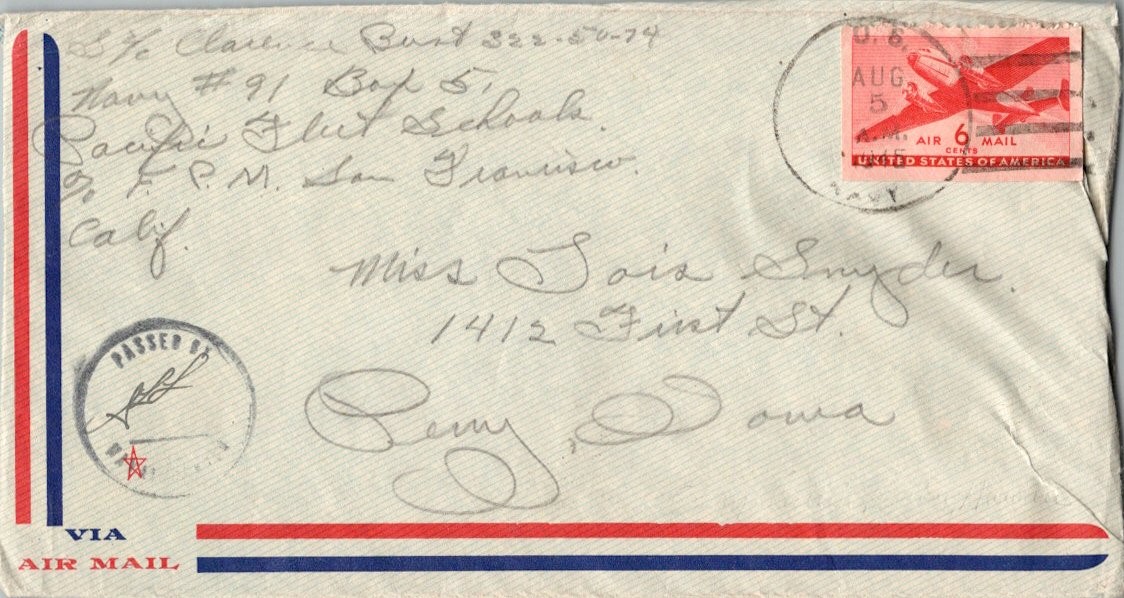 S 1/c Clarence Bust 322-50-74
Navy # 91 Box 5,
Pacific Fleet Schools.
% F. P. M. San Francisco.
Calif.
U. S.
AUG
5
A.M.
1945
NAVY
AIR 6 MAIL
CENTS
UNITED STATES OF AMERICA
Miss Lois Snyder.
1412 First St.
Perry, Iowa
PASSED BY
VIA
AIR MAIL